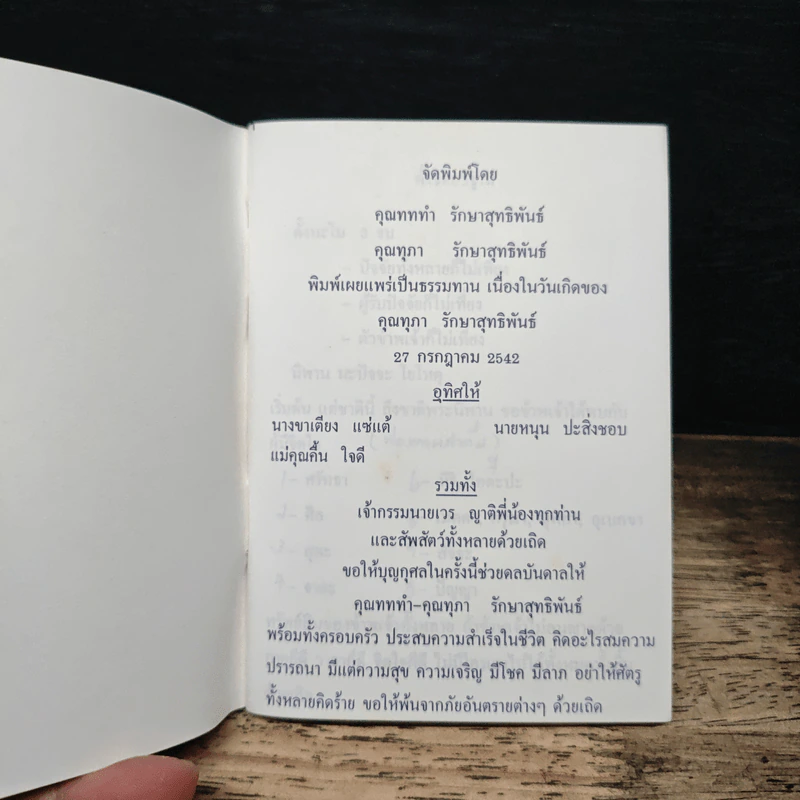 จัดพิมพ์โดย
คุณทททำ รักษาสุทธิพันธ์
คุณทุภา รักษาสุทธิพันธ์
พิมพ์เผยแพร่เป็นธรรมทาน เนื่องในวันเกิดของ
คุณทุภา รักษาสุทธิพันธ์
27 กรกฎาคม 2542
อุทิศให้
นางขาเตียง แซ่แต้ นายหนุน ปะสิ่งชอบ
แม่คุณคื้น ใจดี
รวมทั้ง
เจ้ากรรมนายเวร ญาติพี่น้องทุกท่าน
และสัพสัตว์ทั้งหลายด้วยเถิด
ขอให้บุญกุศลในครั้งนี้ช่วยดลบันดาลให้
คุณทททำ-คุณทุภา รักษาสุทธิพันธ์
พร้อมทั้งครอบครัว ประสบความสำเร็จในชีวิต คิดอะไรสมความ
ปรารถนา มีแต่ความสุข ความเจริญ มีโชค มีลาภ อย่าให้ศัตรู
ทั้งหลายคิดร้าย ขอให้พ้นจากภัยอันตรายต่างๆ ด้วยเถิด